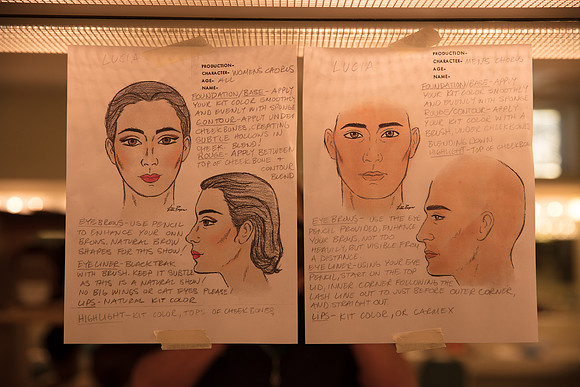 LUCIA
PRODUCTION-
CHARACTER- WOMENS CHORUS
AGE- ALL
NAME-
FOUNDATION/BASE- APPLY
YOUR KIT COLOR SMOOTHLY
AND EVENLY WITH SPONGE
CONTOUR- APPLY UNDER
CHEEKBONES, CREATING
SUBTLE HOLLOWS IN
CHEEK. BLEND!
ROUGE- APPLY BETWEEN
TOP OF CHEEKBONE &
CONTOUR
BLEND
EYEBROWS- USE PENCIL
TO ENHANCE YOUR OWN
BROWS, NATURAL BROW
SHAPES FOR THIS SHOW!
EYELINER- BLACK
WITH BRUSH. KEEP IT SUBTLE
AS THIS IS A NATURAL SHOW!
NO BIG WINGS OR CAT EYES PLEASE!
LIPS- NATURAL KIT COLOR
HIGHLIGHT- KIT COLOR, TOPS OF CHEEKBONES
LUCIA
PRODUCTION-
CHARACTER- MENS CHORUS
AGE-
NAME-
FOUNDATION/BASE- APPLY
YOUR KIT COLOR SMOOTHLY
AND EVENLY WITH SPONGE
ROUGE/CONTOUR- APPLY
YOUR KIT COLOR WITH A
BRUSH, UNDER CHEEKBONE
BLENDING DOWN
HIGHLIGHT- TOP OF CHEEKBONE
EYEBROWS- USE THE EYE
PENCIL PROVIDED, ENHANCE
YOUR BROWS, NOT TOO
HEAVILY, BUT VISIBLE FROM
A DISTANCE.
EYELINER- USING YOUR EYE
PENCIL, START ON THE TOP
LID, INNER CORNER FOLLOWING THE
LASH LINE OUT TO JUST BEFORE OUTER CORNER,
AND STRAIGHT OUT.
LIPS- KIT COLOR, OR CARMEX